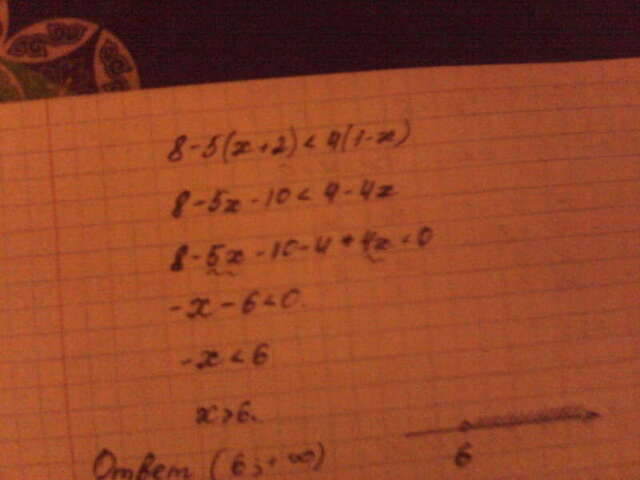 8-5(x+2)<4(1-x)
8-5x-10<4-4x
8-5x-10-4+4x<0
-x-6<0
-x<6
x>6.
6
Ответ (6;+∞)